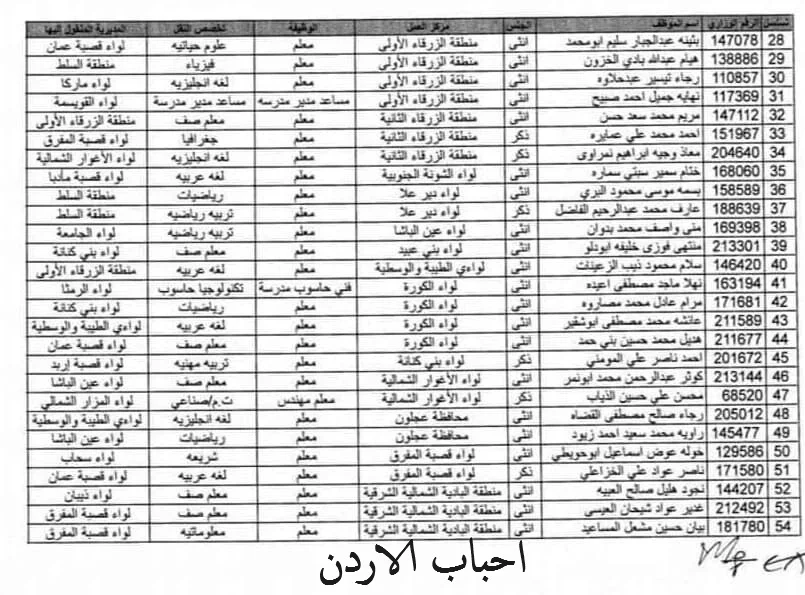 تسلسل الرقم الوزاري اسم الموظف الجنس مركز العمل الوظيفة تخصص النقل المديرية المنقول إليها
28 147078 بثينه عبدالجبار سليم ابومحمد انثى منطقة الزرقاء الأولى معلم علوم حياتيه لواء قصبة عمان
29 138886 هيام عبدالله بادي الخزون انثى منطقة الزرقاء الأولى معلم فيزياء منطقة السلط
30 110857 رجاء تيسير عبدحلاوه انثى منطقة الزرقاء الأولى معلم لغه انجليزيه لواء ماركا
31 117369 نهايه جميل احمد صبيح انثى منطقة الزرقاء الأولى مساعد مدير مدرسه مساعد مدير مدرسة لواء القويسمة
32 147112 مريم محمد سعد حسن انثى منطقة الزرقاء الثانية معلم معلم صف منطقة الزرقاء الأولى
33 151967 احمد محمد علي عمايره ذكر منطقة الزرقاء الثانية معلم جغرافيا لواء قصبة المفرق
34 204640 معاذ وجيه ابراهيم نمراوى ذكر منطقة الزرقاء الثانية معلم لغه انجليزيه لواء الأغوار الشمالية
35 168060 ختام سمير سبتي سماره انثى لواء الشونة الجنوبية معلم لغه عربيه لواء قصبة مأدبا
36 158589 بسمه موسى محمود البري انثى لواء دير علا معلم رياضيات منطقة السلط
37 188639 عارف محمد عبدالرحيم الفاضل ذكر لواء دير علا معلم تربيه رياضيه منطقة السلط
38 169398 منى واصف محمد بدوان انثى لواء عين الباشا معلم تربيه رياضيه لواء الجامعة
39 213301 منتهى فوزى خليفه ابودلو انثى لواء بني عبيد معلم معلم صف لواء بني كنانة
40 146420 سلام محمود ذيب الزعينات انثى لواءي الطيبة والوسطية معلم لغه عربيه منطقة الزرقاء الأولى
41 163194 نهلا ماجد مصطفى اعيده انثى لواء الكورة فني حاسوب مدرسة تكنولوجيا حاسوب لواء الرمثا
42 171681 مرام عادل محمد مصاروه انثى لواء الكورة معلم رياضيات لواء بني كنانة
43 211589 عائشه محمد مصطفى ابوشقير انثى لواء الكورة معلم لغه عربيه لواءي الطيبة والوسطية
44 211677 هديل محمد حسين بني حمد انثى لواء الكورة معلم معلم صف لواء قصبة عمان
45 201672 احمد ناصر علي المومني ذكر لواء بني كنانة معلم تربيه مهنيه لواء قصبة إربد
46 213144 كوثر عبدالرحمن محمد ابونمر انثى لواء الأغوار الشمالية معلم معلم صف لواء عين الباشا
47 68520 محسن علي حسين الذياب ذكر لواء الأغوار الشمالية معلم مهندس ت.م/صناعي لواء المزار الشمالي
48 205012 رجاء صالح مصطفى القضاه انثى محافظة عجلون معلم لغه انجليزيه لواءي الطيبة والوسطية
49 145477 راويه محمد سعيد احمد زيود انثى محافظة عجلون معلم رياضيات لواء عين الباشا
50 129586 خوله عوض اسماعيل ابوحويطي انثى لواء قصبة المفرق معلم شريعه لواء سحاب
51 171580 ناصر عواد علي الخزاعلي ذكر لواء قصبة المفرق معلم لغه عربيه لواء قصبة عمان
52 144207 نجود هليل صالح العبيه انثى منطقة البادية الشمالية الشرقية معلم معلم صف لواء ذيبان
53 212492 غدير عواد شيحان العيسي انثى منطقة البادية الشمالية الشرقية معلم معلم صف لواء قصبة المفرق
54 181780 بيان حسين مشعل المساعيد انثى منطقة البادية الشمالية الشرقية معلم معلوماتيه لواء قصبة المفرق
احباب الاردن